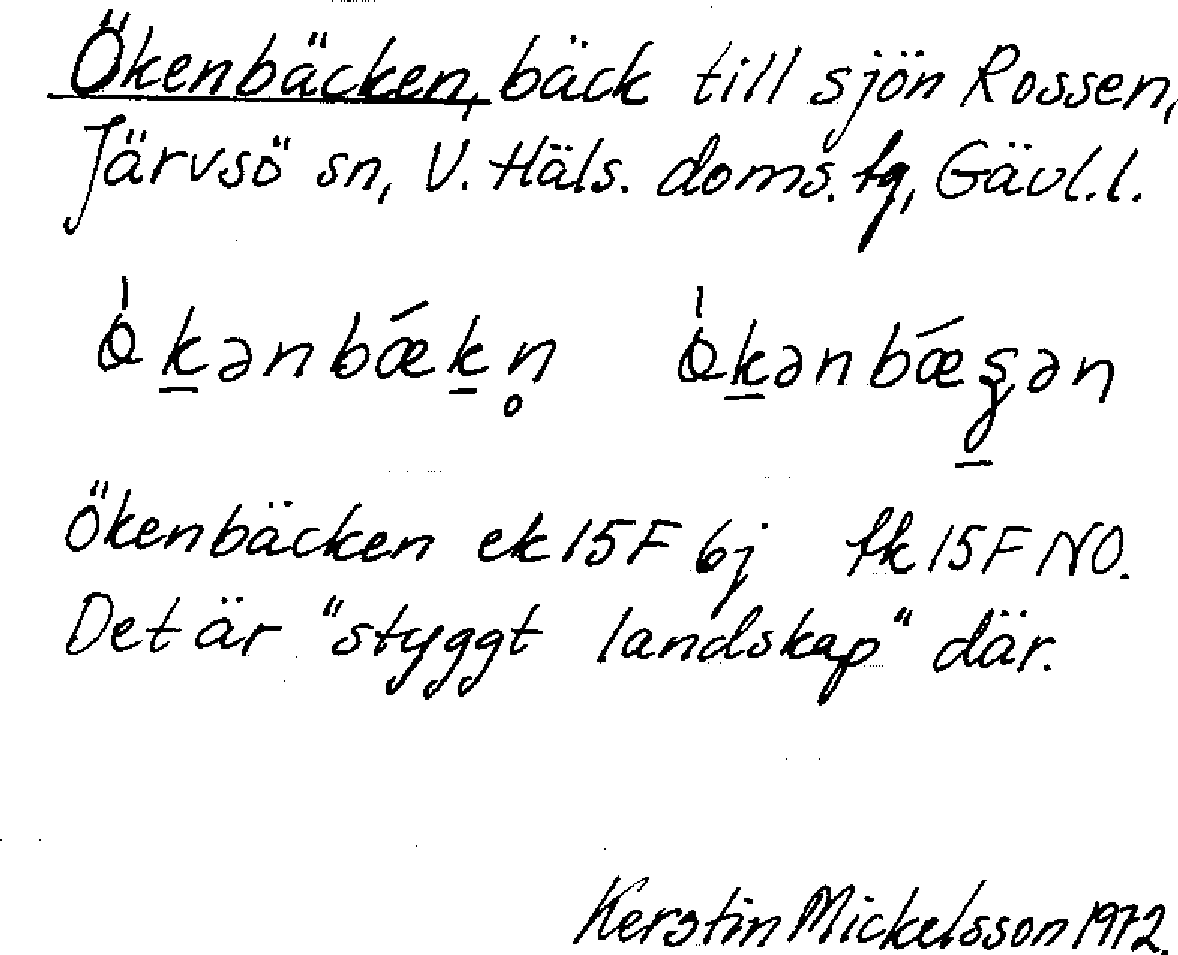 Ökenbäcken, bäck till sjön Rossen,
Järvsö sn, V. Häls. doms. tg, Gävl.l.
Ökenbäcken ek 15F 6j fk 15F NO.
Det är "styggt landskap" där.
Kerstin Mickelsson 1972.